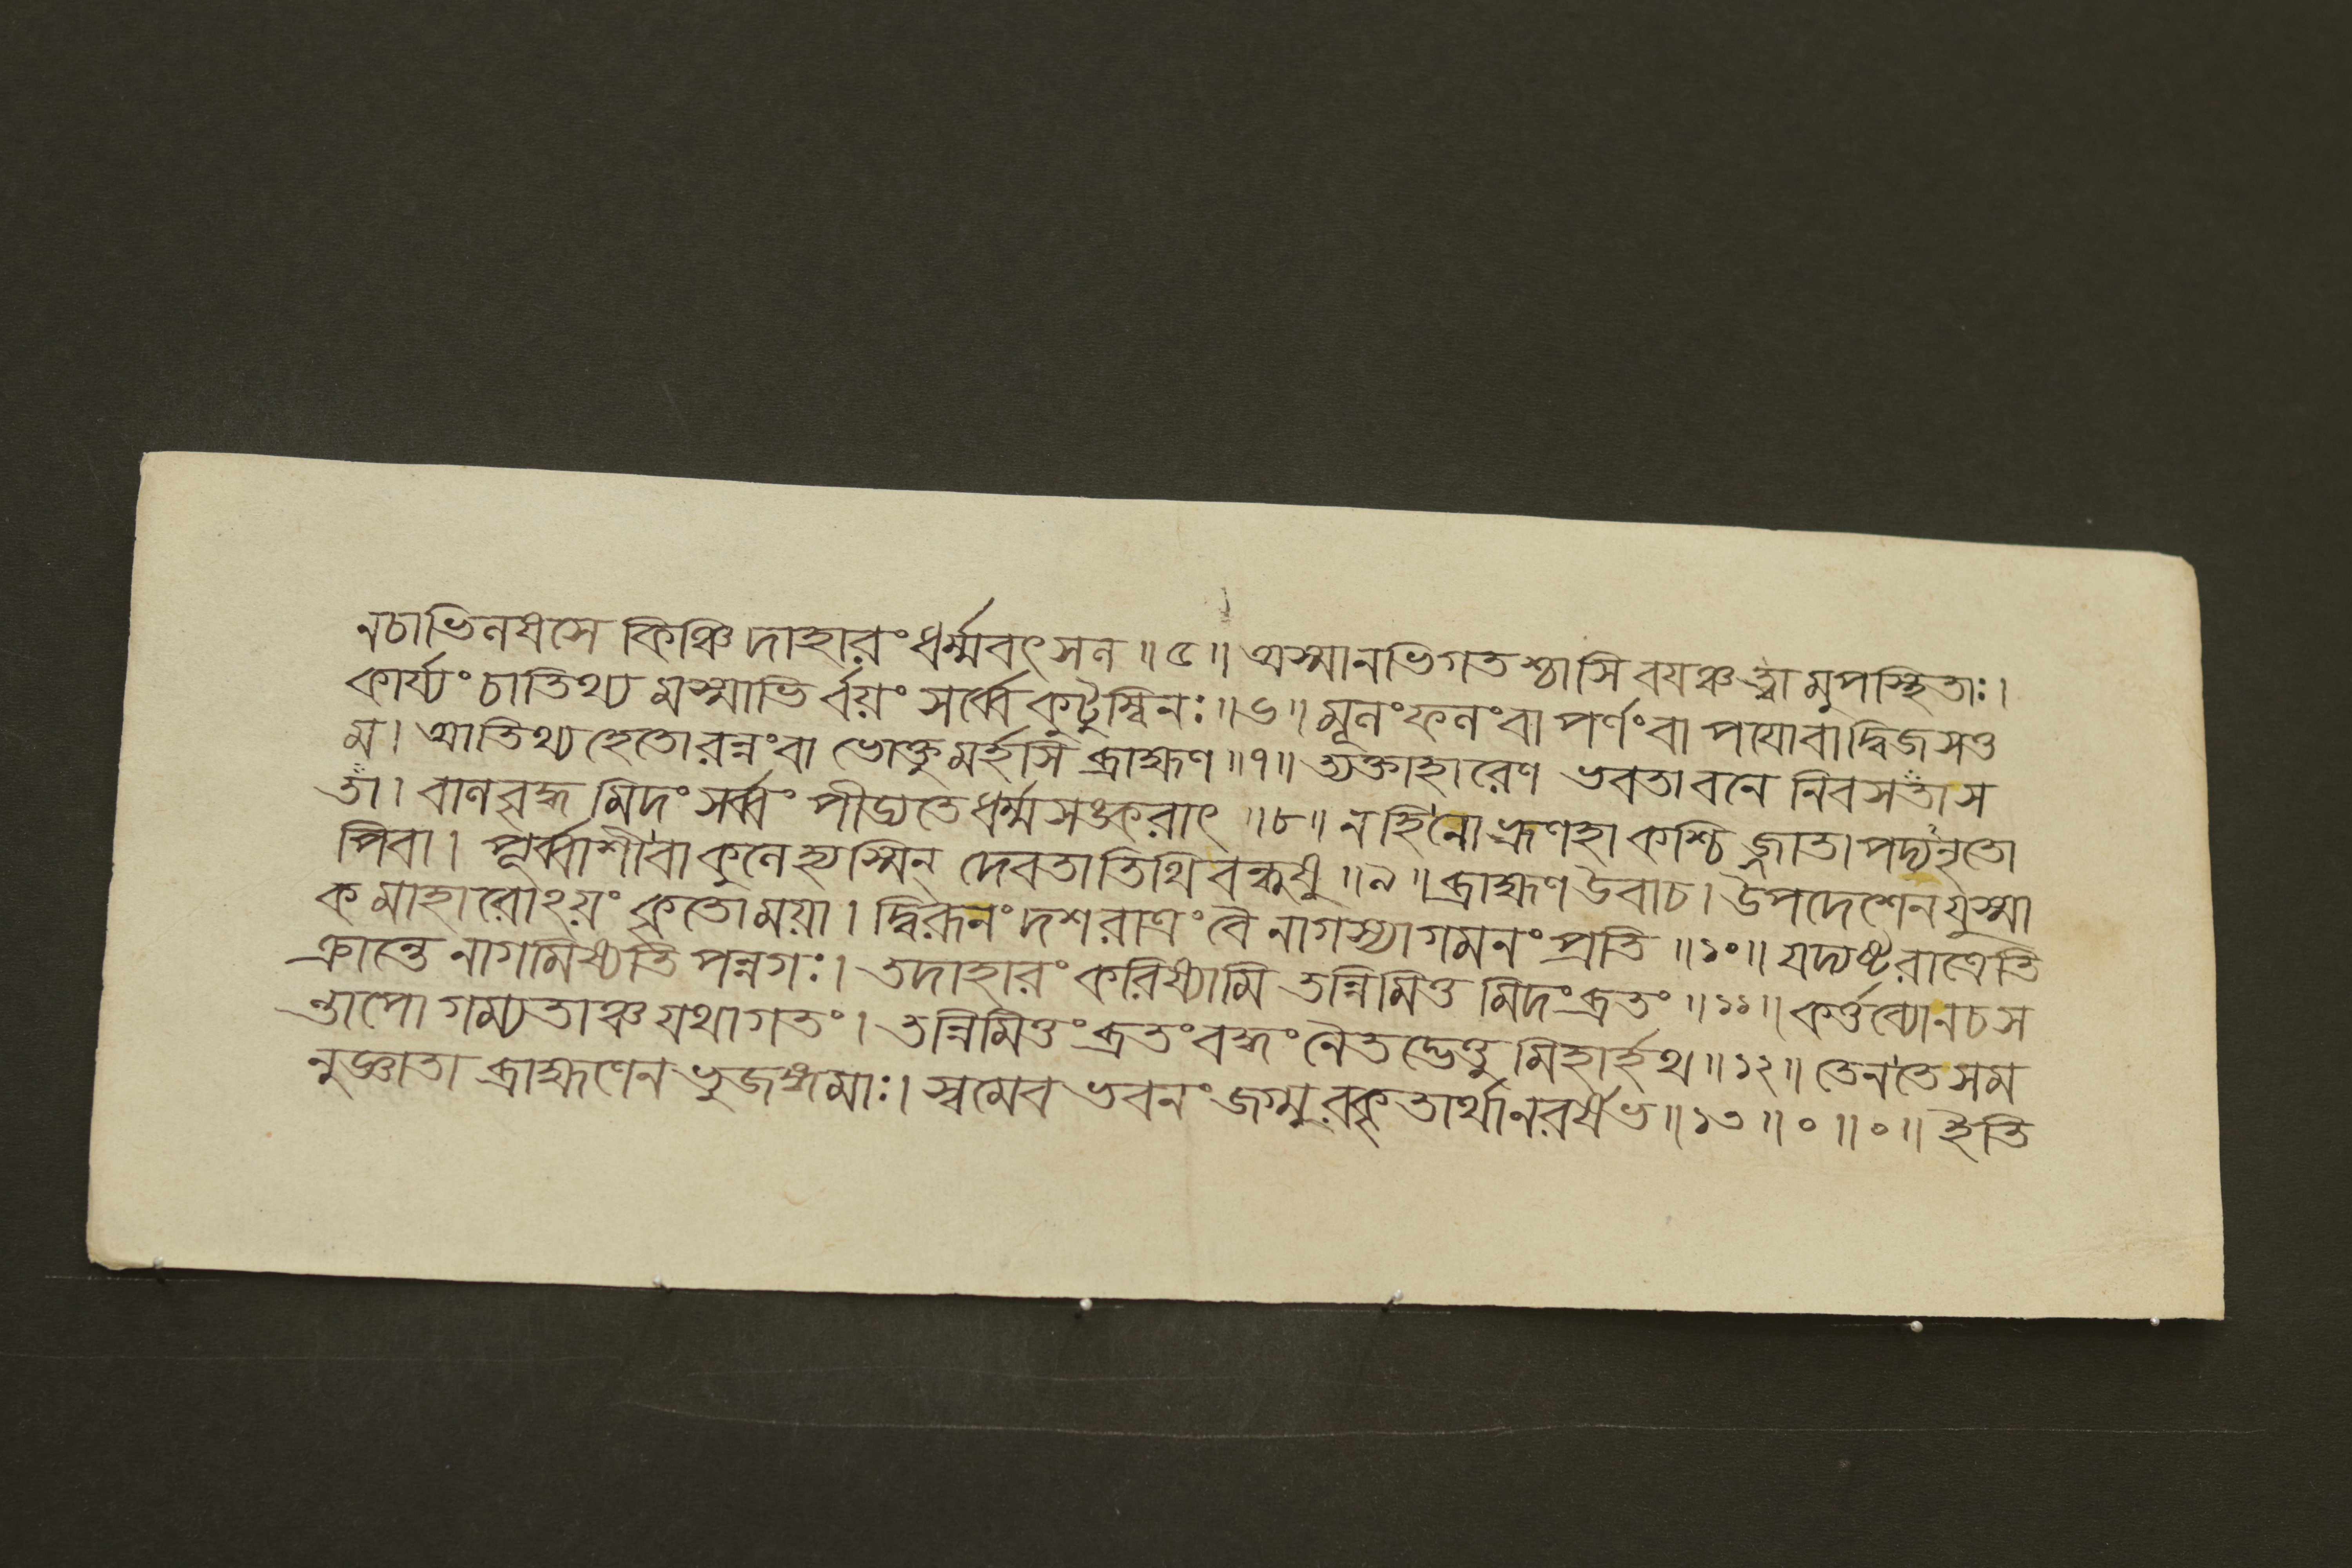 নচাভিলষসে কিঞ্চিদাহারং ধর্ম্মবৎসল ॥ ৫ ॥ অস্মানভিগতশ্চাসি বয়ঞ্চ ত্বামুপস্থিতাঃ ।
কার্য্যং চাতিথ্যমস্মাভির্বয়ং সর্ব্বে কুটুম্বিনঃ ॥ ৬ ॥ মূলং ফলং বা পর্ণং বা পয়োবা দ্বিজসত্ত
ম । আতিথ্যহেতোরন্নং বা ভোক্তুমর্হসি ব্রাহ্মণ ॥ ৭ ॥ ত্যক্তাহারেণ ভবতা বনে নিবসতা স
তা । বালবৃদ্ধমিদং সর্ব্বং পীড্যতে ধর্ম্মসঙ্করাৎ ॥ ৮ ॥ ন হি নো ভ্রূণহা কশ্চিজ্জাতাপদ্যনৃতো
পিবা । পূর্ব্বাশী বা কুলে হ্যস্মিন্ দেবতাতিথিবন্ধুষু ॥ ৯ ॥ ব্রাহ্মণ উবাচ । উপদেশেন যুষ্মা
কমাহারোঽয়ং কৃতো ময়া । দ্বিরূনং দশরাত্রং বৈ নাগস্যাগমনং প্রতি ॥ ১০ ॥ যদ্যষ্টরাত্রেতি
ক্রান্তে নাগমিষ্যতি পন্নগঃ । তদাহারং করিষ্যামি তন্নিমিত্তমিদং ব্রতং ॥ ১১ ॥ কর্ত্তব্যো ন চ স
ন্তাপো গম্যতাঞ্চ যথাগতং । তন্নিমিত্তং ব্রতং বহ্মং নৈতদ্ভেত্তুমিহার্হথ ॥ ১২ ॥ তেন তে সম
নুজ্ঞাতা ব্রাহ্মণেন ভুজঙ্গমাঃ । স্বমেব ভবনং জগ্মুরকৃতার্থা নরর্ষভ ॥ ১৩ ॥ ০ ॥ ০ ॥ ইতি